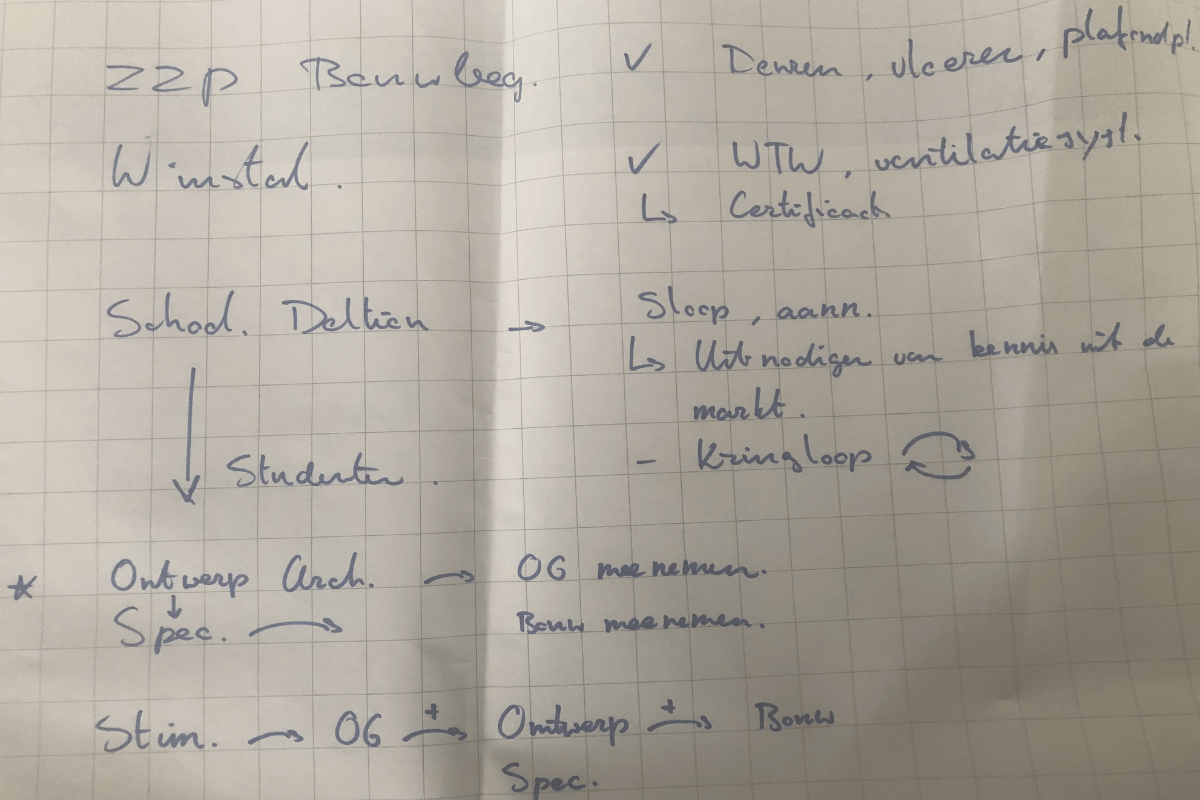 ZZP Bouwbeg. ✓ Deuren, vloeren, plafondpl.
W instal. ✓ WTW, ventilatiesyst.
↳ Certificaat
School. Deltion → Sloop, aann.
↳ Uitnodigen van kennis uit de
markt.
- Kringloop
↓ Studenten.
* Ontwerp Arch. → OG meenemen.
↓
Spec. → Bouw meenemen.
Stim. → OG +→ Ontwerp +→ Bouw
Spec.